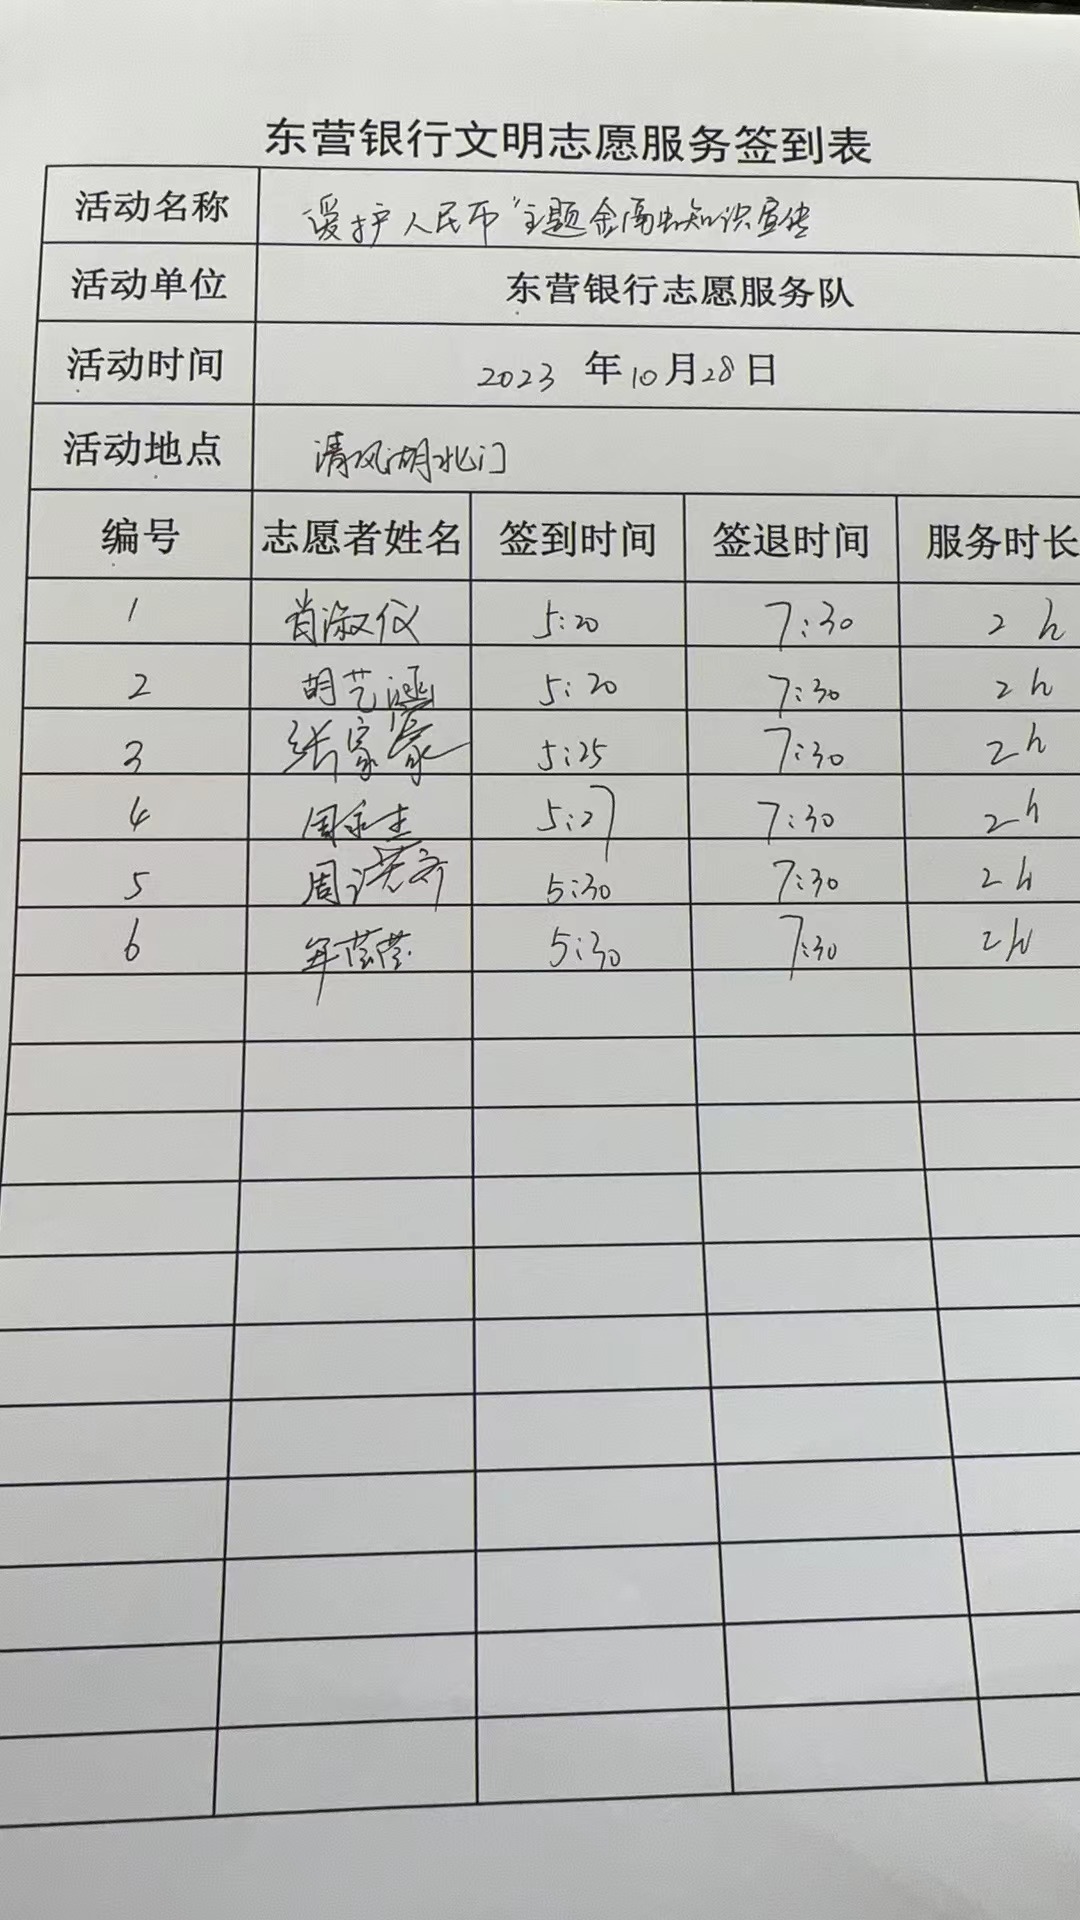 东营银行文明志愿服务签到表
活动名称 爱护人民币"主题金融知识宣传
活动单位 东营银行志愿服务队
活动时间 2023 年10月28日
活动地点 清风湖北门
编号 志愿者姓名 签到时间 签退时间 服务时长
1 肖淑仪 5:20 7:30 2 h
2 胡艺涵 5:20 7:30 2h
3 张家豪 5:25 7:30 2h
4 周 5:27 7:30 2h
5 周 5:30 7:30 2h
6 年 5:30 7:30 2h